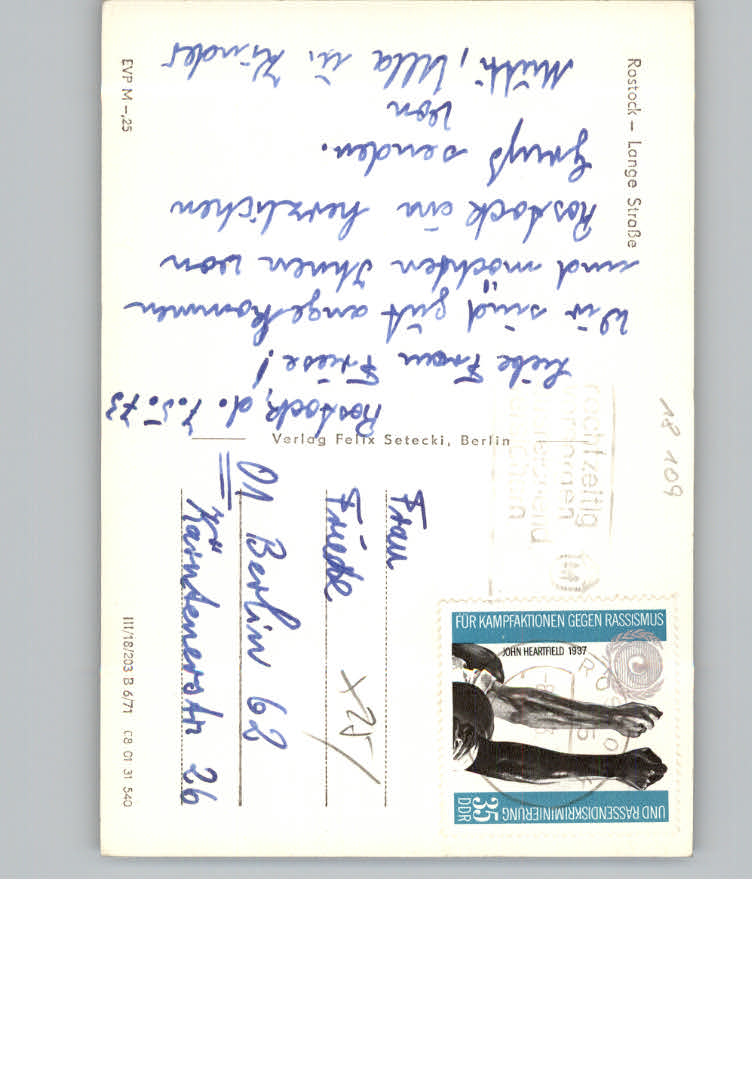 Rostock, d. 7.5.73
Liebe Frau Friese!
Wir sind gut angekommen
und möchten Ihnen von
Rostock ein herzlichen
Gruß senden.
von
Mutti, Ulla u. Kinder
Rostock – Lange Straße
EVP M –,25
Verlag Felix Setecki, Berlin
III/18/203 B 6/71 C8 01 31 540
18 109
Frau
Friese
01 Berlin 62
Kärntenerstr 26
x25/
FÜR KAMPFAKTIONEN GEGEN RASSISMUS
JOHN HEARTFIELD 1937
UND RASSENDISKRIMINIERUNG
35
DDR